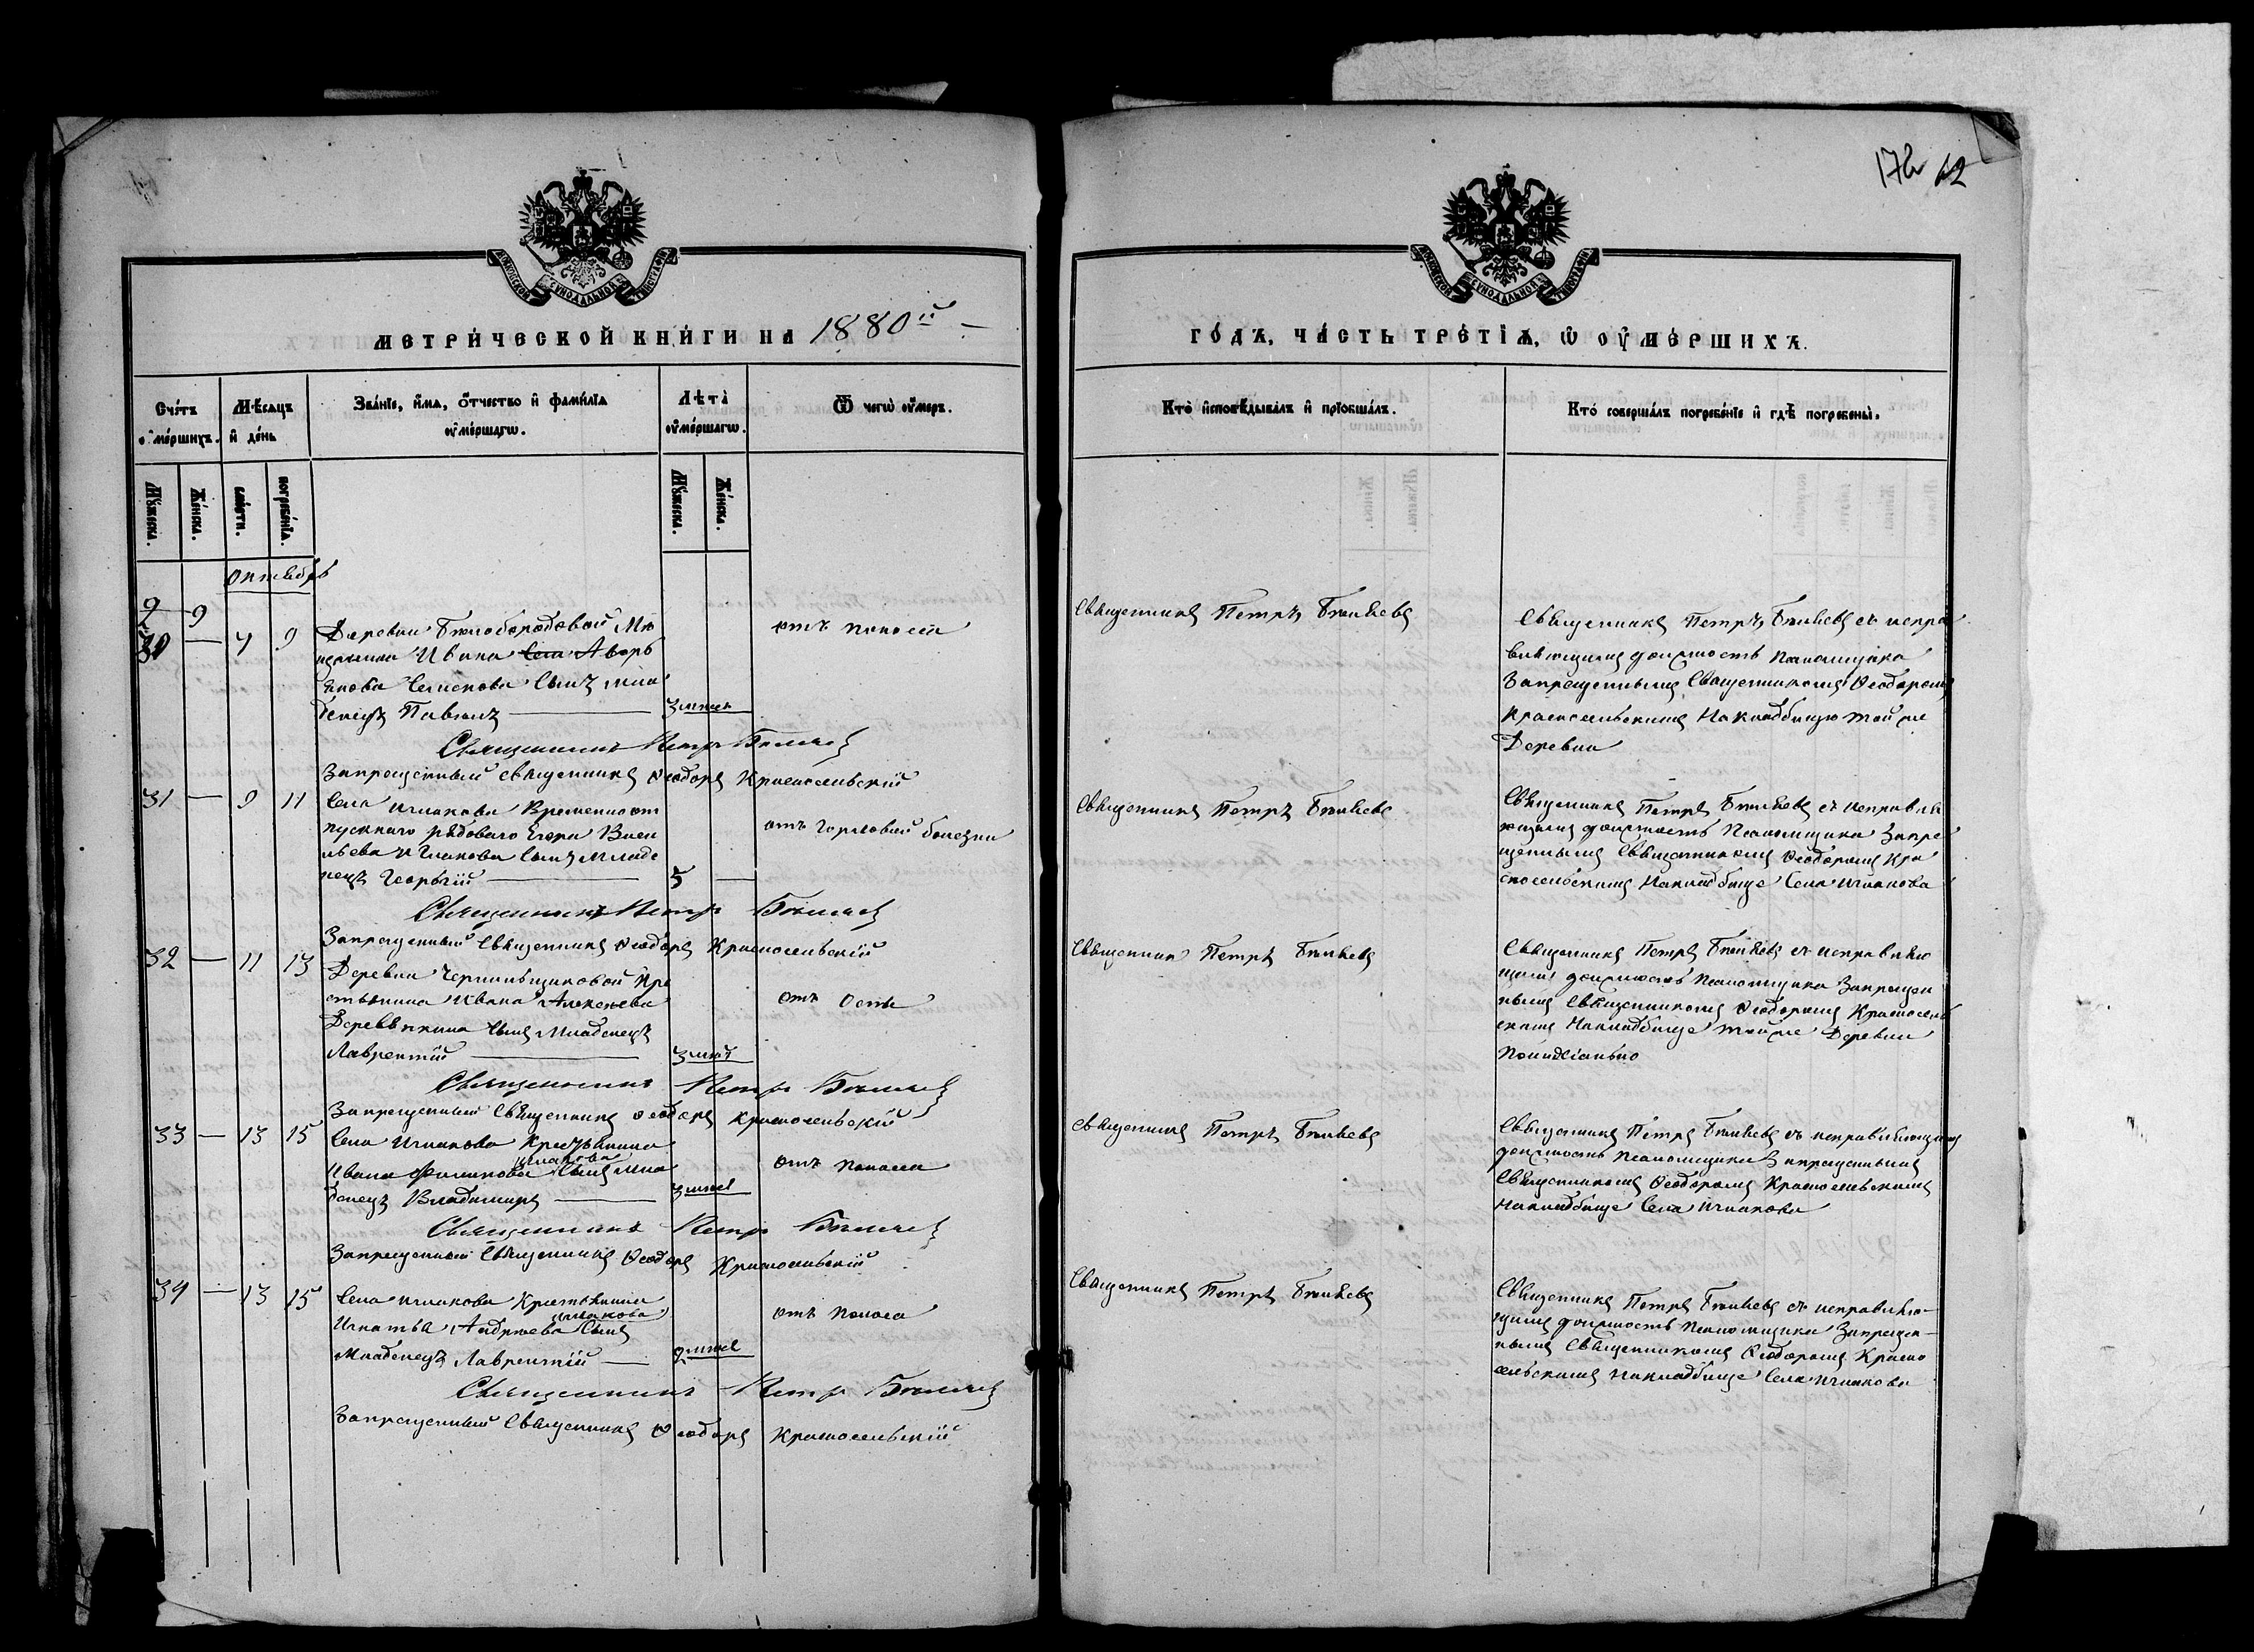 172 62
МОСКОВСКОЙ СѴНОДАЛЬНОЙ ТИПОГРАФІИ
МОСКОВСКОЙ СѴНОДАЛЬНОЙ ТИПОГРАФІИ
МЕТРИ́ЧЕСКОЙ КНИ́ГИ НА 1880й
ГО́ДЪ, ЧА́СТЬ ТРЕ́ТІѦ, Ѿ ОУ҆МЕ́РШИХЪ.
Сче́тъ оу҆ме́ршихъ.
Мѣ́сяцъ и҆ де́нь
Зва́нїе, и҆́мѧ, ѻ҆́тчество и҆ фами́лїѧ оу҆ме́ршагѡ.
Лѣ́та оу҆ме́ршагѡ.
Ѿ чегѡ̀ оу҆́меръ.
Кто̀ и҆сповѣ́дывалъ и҆ прїобща́лъ.
Кто̀ соверша́лъ погребе́нїе и҆ гдѣ̀ погребены̀.
Мꙋ́жеска.
Же́нска.
сме́рти.
погребе́нїѧ.
Мꙋ́жеска.
Же́нска.
октябрь
30 — 7 9 Деревни Белобородовой Мѣ
щанина Ивана
сынъ мла
денецъ Павелъ — 3 мѣсе
отъ поноса
Священникъ Петръ Бѣляевъ
Священникъ Петръ Бѣляевъ съ испра
вляющимъ должность псаломщика
Запрещеннымъ Священникомъ Ѳеодоромъ
Красносельскимъ На кладбищѣ той же
Деревни
Священникъ Петръ Бѣляевъ
Запрещенный священникъ Ѳеодоръ Красносельскій
31 — 9 11 Села Ишлакова Временноот
пускнаго рядоваго Егора Васи
льева Ишлакова сынъ младе
нецъ Георгій — 5 —
отъ горловой болезни
Священникъ Петръ Бѣляевъ
Священникъ Петръ Бѣляевъ съ исправля
ющимъ должность Псаломщика Запре
щеннымъ Священникомъ Ѳеодоромъ Кра
сносельскимъ На кладбище Села Ишлакова
Священникъ Петръ Бѣляевъ
Запрещенный Священникъ Ѳеодоръ Красносельскій
32 — 11 13 Деревни Чернильщиковой Кре
стьянина Ивана Алексѣева
Деревянкина сынъ Младенецъ
Лаврентій — 3 лѣт
отъ Оспы
Священник Петръ Бѣляевъ
Священникъ Петръ Бѣляевъ съ исправляю
щимъ должность Псаломщика Запрещен
нымъ Священникомъ Ѳеодоромъ Красносель
скимъ На кладбище той же Деревни
Священникъ Петръ Бѣляевъ
Запрещенный Священникъ Ѳеодоръ Красносельскій
33 — 13 15 Села Ишлакова Крестьянина
Ивана Филипова Ишлакова Сынъ мла
денецъ Владимиръ — 3 мѣсе
отъ поноса
Священникъ Петръ Бѣляевъ
Священникъ Петръ Бѣляевъ съ исправляющимъ
должность псаломщика Запрещеннымъ
Священникомъ Ѳеодоромъ Красносельскимъ
На кладбище Села Ишлакова
Священникъ Петръ Бѣляевъ
Запрещенный Священникъ Ѳеодоръ Красносельскій
34 — 13 15 Села Ишлакова Крестьянина
Игнатья Андреева Ишлакова Сынъ
Младенецъ Лаврентій — 2 мѣсе
отъ поноса
Священникъ Петръ Бѣляевъ
Священникъ Петръ Бѣляевъ съ исправляю-
щимъ должность Псаломщика Запрещен-
нымъ Священникомъ Ѳеодоромъ Красно
сельскимъ На кладбище Села Ишлакова
Священникъ Петръ Бѣляевъ
Запрещенный Священникъ Ѳеодоръ Красносельскій